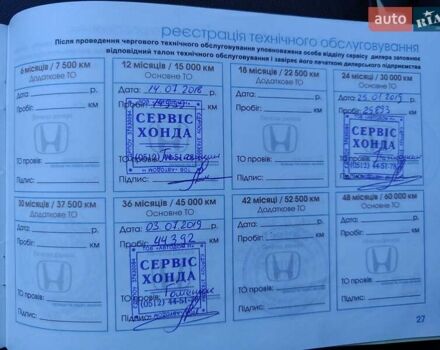 auto RIA
реєстрація технічного обслуговування
Після проведення чергового технічного обслуговування уповноважена особа відділу сервісу дилера заповнює
відповідний талон технічного обслуговування і завіряє його печаткою дилерського підприємства
6 місяців / 7 500 км
Додаткове ТО
Дата: р.
Пробіг: км
ТО провів:
Підпис:
12 місяців / 15 000 км
Основне ТО
Дата: 14.07.2018 р.
Пробіг: км
СЕРВІС
ХОНДА
(0512)
ТО провів:
Підпис:
18 місяців / 22 500 км
Додаткове ТО
Дата: р.
Пробіг: км
ТО провів:
Підпис:
24 місяці / 30 000 км
Основне ТО
Дата: 25.01.2019 р.
Пробіг: 25893 км
СЕРВІС
ХОНДА
(0512) 44-51-78
ТО провів:
Підпис:
30 місяців / 37 500 км
Додаткове ТО
Дата: р.
Пробіг: км
ТО провів:
Підпис:
36 місяців / 45 000 км
Основне ТО
Дата: 03.07.2019 р.
Пробіг: 44392 км
СЕРВІС
ХОНДА
(0512) 44-51-78
ТО провів:
Підпис:
42 місяці / 52 500 км
Додаткове ТО
Дата: р.
Пробіг: км
ТО провів:
Підпис:
48 місяців / 60 000 км
Основне ТО
Дата: р.
Пробіг: км
ТО провів:
Підпис:
27